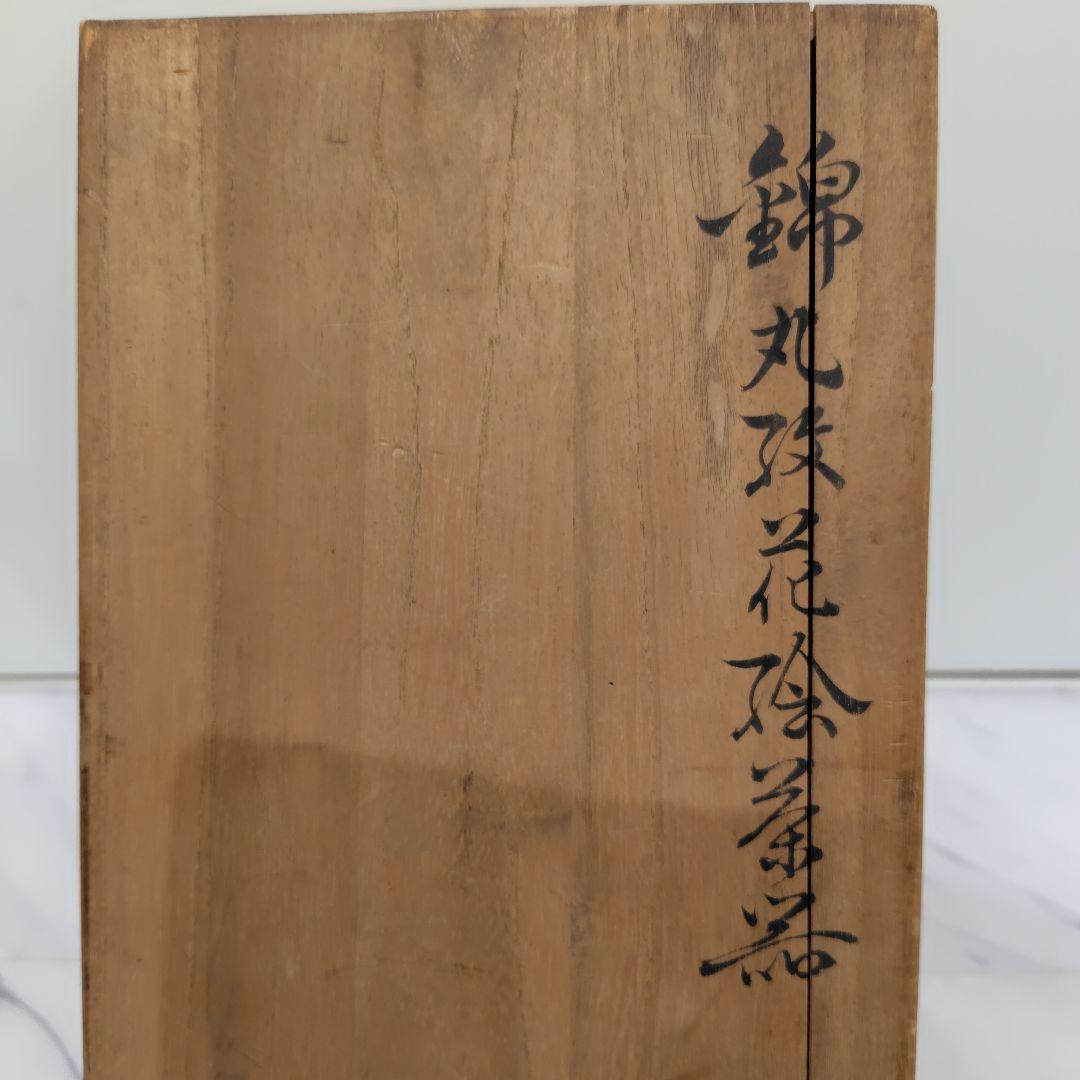 錦丸紋花絵茶器